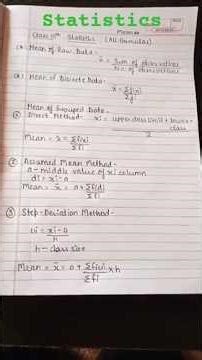 Statistics
Class 10th Statistics (All Formulas)
Mean of Raw Data -
x̄ = Sum of observations
No. of observations
Mean of Discrete Data -
x̄ = Σfixi
Σfi
Mean of Grouped Data -
① Direct Method - xi = upper class limit + lower class
2
Mean = x̄ = Σfixi
Σfi
② Assumed Mean Method -
a - middle value of xi column
di = xi - a
Mean = x̄ = a + Σfidi
Σfi
③ Step-Deviation Method -
ui = xi - a
h
h - class size
Mean = x̄ = a + Σfiui × h
Σfi